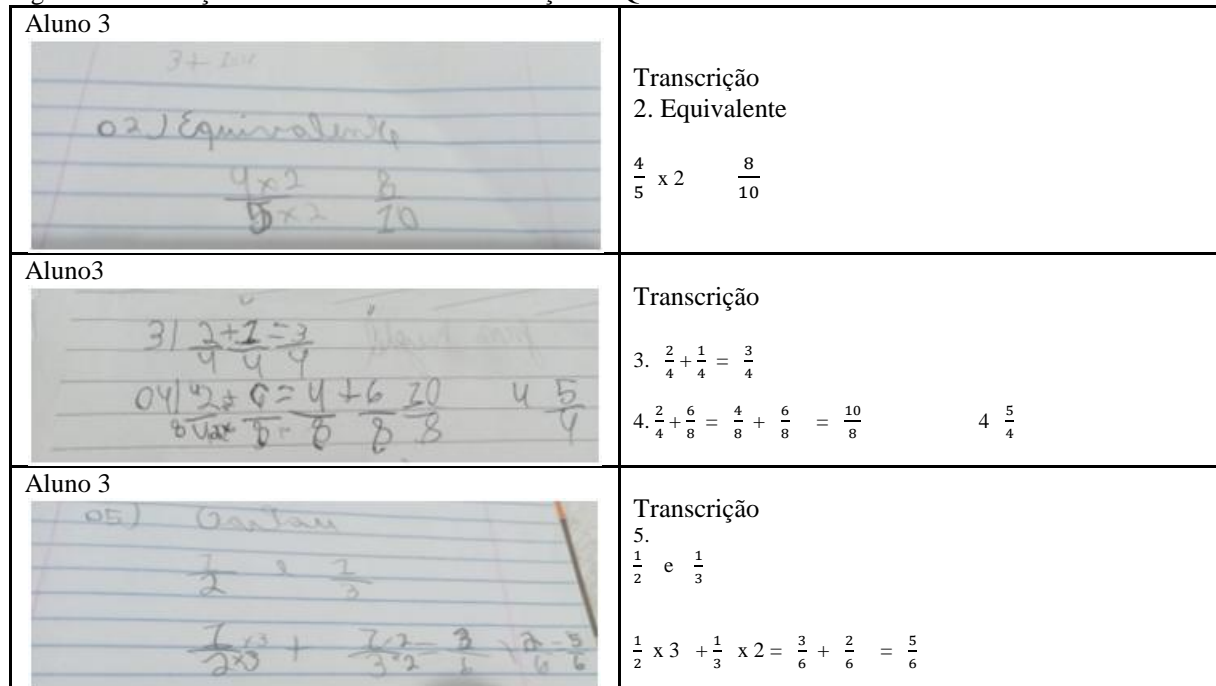 Aluno 3
02) Equivalente
4 x 2 8
5 x 2 10
Transcrição
2. Equivalente
4/5 x 2 8/10
Aluno3
3) 2/4 + 1/4 = 3/4
04) 2/4 + 6/8 = 4/8 + 6/8 10/8 4 5/4
Transcrição
3. 2/4 + 1/4 = 3/4
4. 2/4 + 6/8 = 4/8 + 6/8 = 10/8 4 5/4
Aluno 3
05)
1/2 e 1/3
1/2 x3 x3 + 1·2/3·2 = 3/6 2/6 = 5/6
Transcrição
5.
1/2 e 1/3
1/2 x 3 + 1/3 x 2 = 3/6 + 2/6 = 5/6